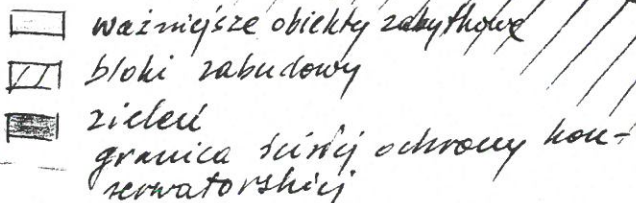 ważniejsze obiekty zabytkowe
bloki zabudowy
zieleń
granica ścisłej ochrony kon-
serwatorskiej